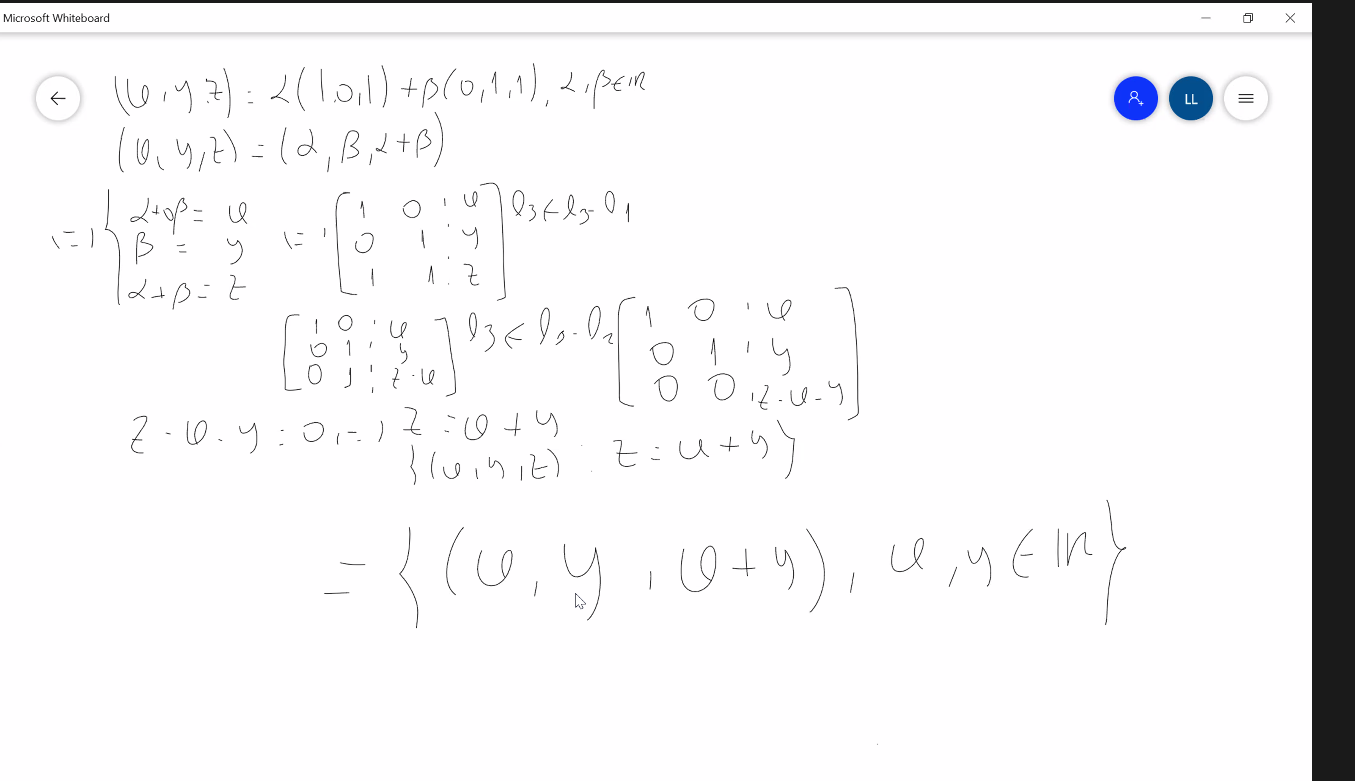 Microsoft Whiteboard
LL
(x, y, z) = α(1,0,1) + β(0,1,1), α, β ∈ IR
(x, y, z) = (α, β, α+β)
α+0β = x
β = y
α+β = z
1 0 : x
0 1 : y
1 1 : z
l3 ← l3 - l1
1 0 : x
0 1 : y
0 1 : z - x
l3 ← l3 - l2
1 0 : x
0 1 : y
0 0 : z - x - y
z - x - y = 0 (=) z = x + y
{(x, y, z) : z = x + y}
= {(x, y, x + y), x, y ∈ IR}